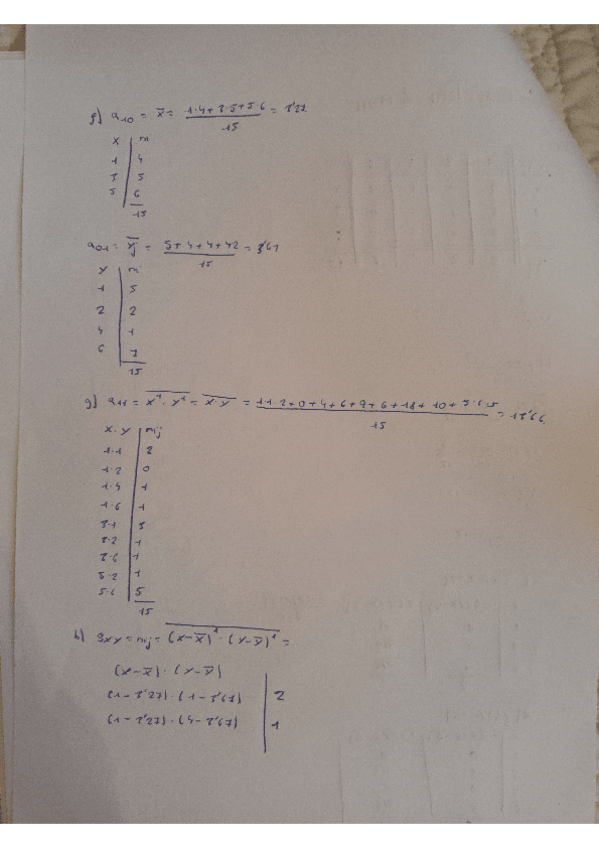 g) a10 = x̄ = 1·4+3·5+5·6 / 15 = 3'27
x | ni
1 | 4
3 | 5
5 | 6
15
a01 = ȳj = 5+4+4+42 / 15 = 3'67
y | ni
1 | 5
2 | 2
4 | 1
6 | 7
15
g) a11 = x¹·y¹ = x·y = 1·1·2+0+4+6+9+6+18+10+5·6·5 / 15 = 13'66
x·y | nij
1·1 | 2
1·2 | 0
1·4 | 1
1·6 | 1
3·1 | 3
3·2 | 1
3·6 | 1
5·2 | 1
5·6 | 5
15
h) Sxy = mij = (x-x̄)¹·(y-ȳ)¹ =
(x-x̄)·(y-ȳ)
(1-3'27)·(1-3'67) | 2
(1-3'27)·(4-3'67) | 1